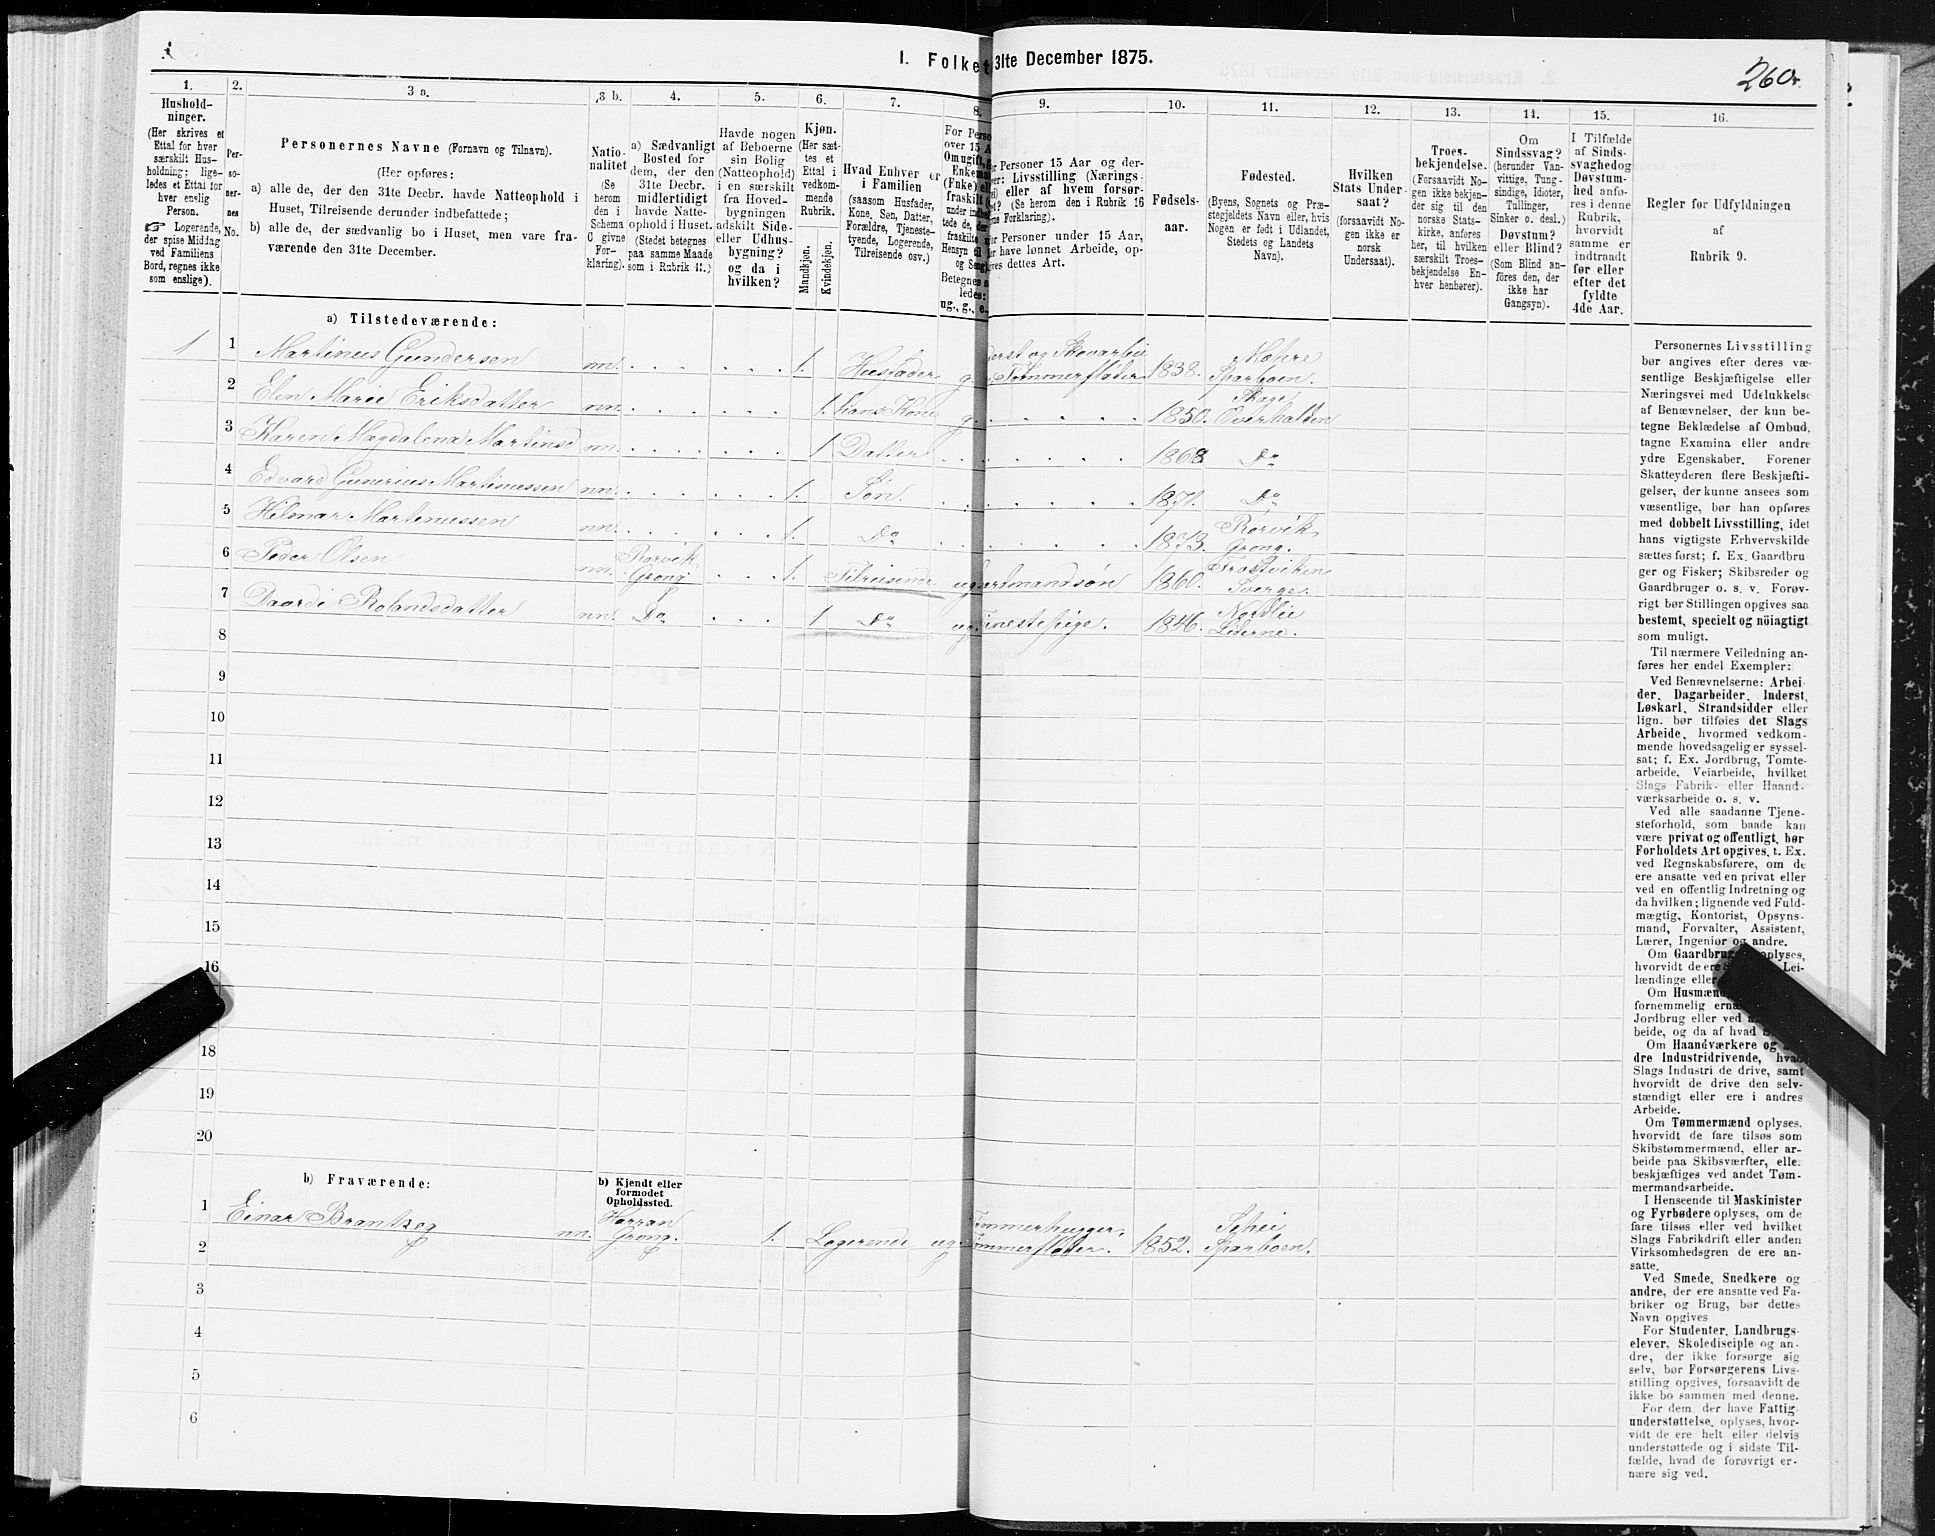 I. Folket 31te December 1875.
260.
1. 2. 3 a. 3 b. 4. 5. 6. 7. 8. 9. 10. 11. 12. 13. 14. 15. 16.
Hushold-
ninger.
(Her skrives et
Ettal for hver
særskilt Hus-
holdning; lige-
ledes et Ettal for
hver enslig
Person.
☞ Logerende,
der spise Middag
ved Familiens
Bord, regnes ikke
som enslige).
Per-
so-
ner-
nes
No.
Personernes Navne (Fornavn og Tilnavn).
(Her opføres:
a) alle de, der den 31te Decbr. havde Natteophold i
Huset, Tilreisende derunder indbefattede;
b) alle de, der sædvanlig bo i Huset, men vare fra-
værende den 31te December.
Natio-
nalitet
(Se
herom
den i
Schema
O givne
For-
klaring).
a) Sædvanligt
Bosted for
dem, der den
31te Decbr.
midlertidigt
havde Natte-
ophold i Huset.
(Stedet betegnes
paa samme Maade
som i Rubrik 11.)
Havde nogen
af Beboerne
sin Bolig
(Natteophold)
i en særskilt
fra Hoved-
bygningen
adskilt Side-
eller Udhus-
bygning?
og da i
hvilken?
Kjøn.
(Her sæt-
tes et
Ettal i
vedkom-
mende
Rubrik.
Mandkjøn.
Kvindekjøn.
Hvad Enhver er
i Familien
(saasom Husfader,
Kone, Søn, Datter,
Forældre, Tjeneste-
tyende, Logerende,
Tilreisende osv.)
For Perso
over 15 A
Omugift,
Enkema
(Fnke) el
fraskilt
under indbe
tede de, der
fraskilte
Hensyn til
og Seng
Betegnes s
ledes:
ug., g., e.
Personer 15 Aar og der-
over: Livsstilling (Nærings-
vei) eller af hvem forsør-
get? (Se herom den i Rubrik 16
givne Forklaring).
For Personer under 15 Aar,
der have lønnet Arbeide, op-
gives dettes Art.
Fødsels-
aar.
Fødested.
(Byens, Sognets og Præ-
stegjeldets Navn eller, hvis
Nogen er født i Udlandet,
Stedets og Landets
Navn).
Hvilken
Stats Under-
saat?
(forsaavidt No-
gen ikke er
norsk
Undersaat).
Troes-
bekjendelse.
(Forsaavidt No-
gen ikke bekjen-
der sig til den
norske Stats-
kirke, anføres
her, til hvilken
særskilt Troes-
bekjendelse En-
hver henhører).
Om
Sindssvag?
(herunder Van-
vittige, Tung-
sindige, Idioter,
Tullinger,
Sinker o. desl.)
Døvstum?
eller Blind?
(Som Blind an-
føres den, der
ikke har
Gangsyn).
I Tilfælde
af Sinds-
svaghedog
Døvstum-
hed anfø-
res i denne
Rubrik,
hvorvidt
samme er
indtraadt
før eller
efter det
fyldte
4de Aar.
Regler for Udfyldningen
af
Rubrik 9.
a) Tilstedeværende:
1 1 Martinus Gundersen nn. 1. Husfader g. Inderst og Skovarbei Tømmerfløder 1838. Mæhre Sparboen.
2 Elen Marie Eriksdatter nn. 1. hans Kone g. 1850. Skage Overhalden
3 Karen Magdalena Martinsd nn. 1 Datter 1868 Do
4 Edvard Gunerius Martinussen nn. 1. Søn. 1871. Do
5 Hilmar Martinussen nn. 1. Do 1873. Rørvik Grong.
6 Peder Olsen nn. Rørvik Grong 1. Tilreisende ug. Gardmandsøn 1860. Frostviken Sverge.
7 Daardi Rolandsdatter nn. Do 1 Do ug. Tjenestepige. 1846. Nordlie Lierne.
8
9
10
11
12
13
14
15
16
18
19
20
b) Fraværende:
b) Kjendt eller
formodet
Opholdssted.
1 Einar Brantzeg nn. Harran Grong. 1. Logerende ug. Tømmerhugger, Tømmerfløder. 1852. Schei Sparboen.
2
3
4
5
6
Personernes Livsstilling
bør angives efter deres væ-
sentlige Beskjæftigelse eller
Næringsvei med Udelukkelse
af Benævnelser, der kun be-
tegne Beklædelse af Ombud,
tagne Examina eller andre
ydre Egenskaber. Forener
Skatteyderen flere Beskjæfti-
gelser, der kunne ansees som
væsentlige, bør han opføres
med dobbelt Livsstilling, idet
hans vigtigste Erhvervskilde
sættes først; f. Ex. Gaardbru-
ger og Fisker; Skibsreder og
Gaardbruger o. s. v. Forøv-
rigt bør Stillingen opgives saa
bestemt, specielt og nöiagtigt
som muligt.
Til nærmere Veiledning an-
føres her endel Exempler:
Ved Benævnelserne: Arbei-
der, Dagarbeider, Inderst,
Løskarl, Strandsidder eller
lign. bør tilføies det Slags
Arbeide, hvormed vedkom-
mende hovedsagelig er syssel-
sat; f. Ex. Jordbrug, Tomte-
arbeide, Veiarbeide, hvilket
Slags Fabrik- eller Haand-
værksarbeide o. s. v.
Ved alle saadanne Tjene-
steforhold, som baade kan
være privat og offentligt, bør
Forholdets Art opgives, t. Ex.
ved Regnskabsførere, om de
ere ansatte ved en privat eller
ved en offentlig Indretning og
da hvilken; lignende ved Fuld-
mægtig, Kontorist, Opsyns-
mand, Forvalter, Assistent,
Lærer, Ingeniør og andre.
Om Gaardbrug oplyses,
hvorvidt de ere S Lei-
lændinge eller
Om Husmænd
fornemmelig ern
Jordbrug eller ved
beide, og da af hvad
Om Haandværkere og
dre Industridrivende, hvad
Slags Industri de drive, samt
hvorvidt de drive den selv-
stændigt eller ere i andres
Arbeide.
Om Tømmermænd oplyses,
hvorvidt de fare tilsøs som
Skibstømmermænd, eller ar-
beide paa Skibsværfter, eller
beskjæftiges ved andet Tøm-
mermandsarbeide.
I Henseende til Maskinister
og Fyrbødere oplyses, om de
fare tilsøs eller ved hvilket
Slags Fabrikdrift eller anden
Virksomhedsgren de ere an-
satte.
Ved Smede, Snedkere og
andre, der ere ansatte ved Fa-
briker og Brug, bør dettes
Navn opgives
For Studenter, Landbrugs-
elever, Skoledisciple og an-
dre, der ikke forsørge sig
selv, bør Forsørgerens Livs-
stilling opgives, forsaavidt de
ikke bo sammen med denne.
For dem, der have Fattig-
understøttelse, oplyses, hvor-
vidt de ere helt eller delvis
understøttede og i sidste Til-
fælde, hvad de forøvrigt er-
nære sig ved.